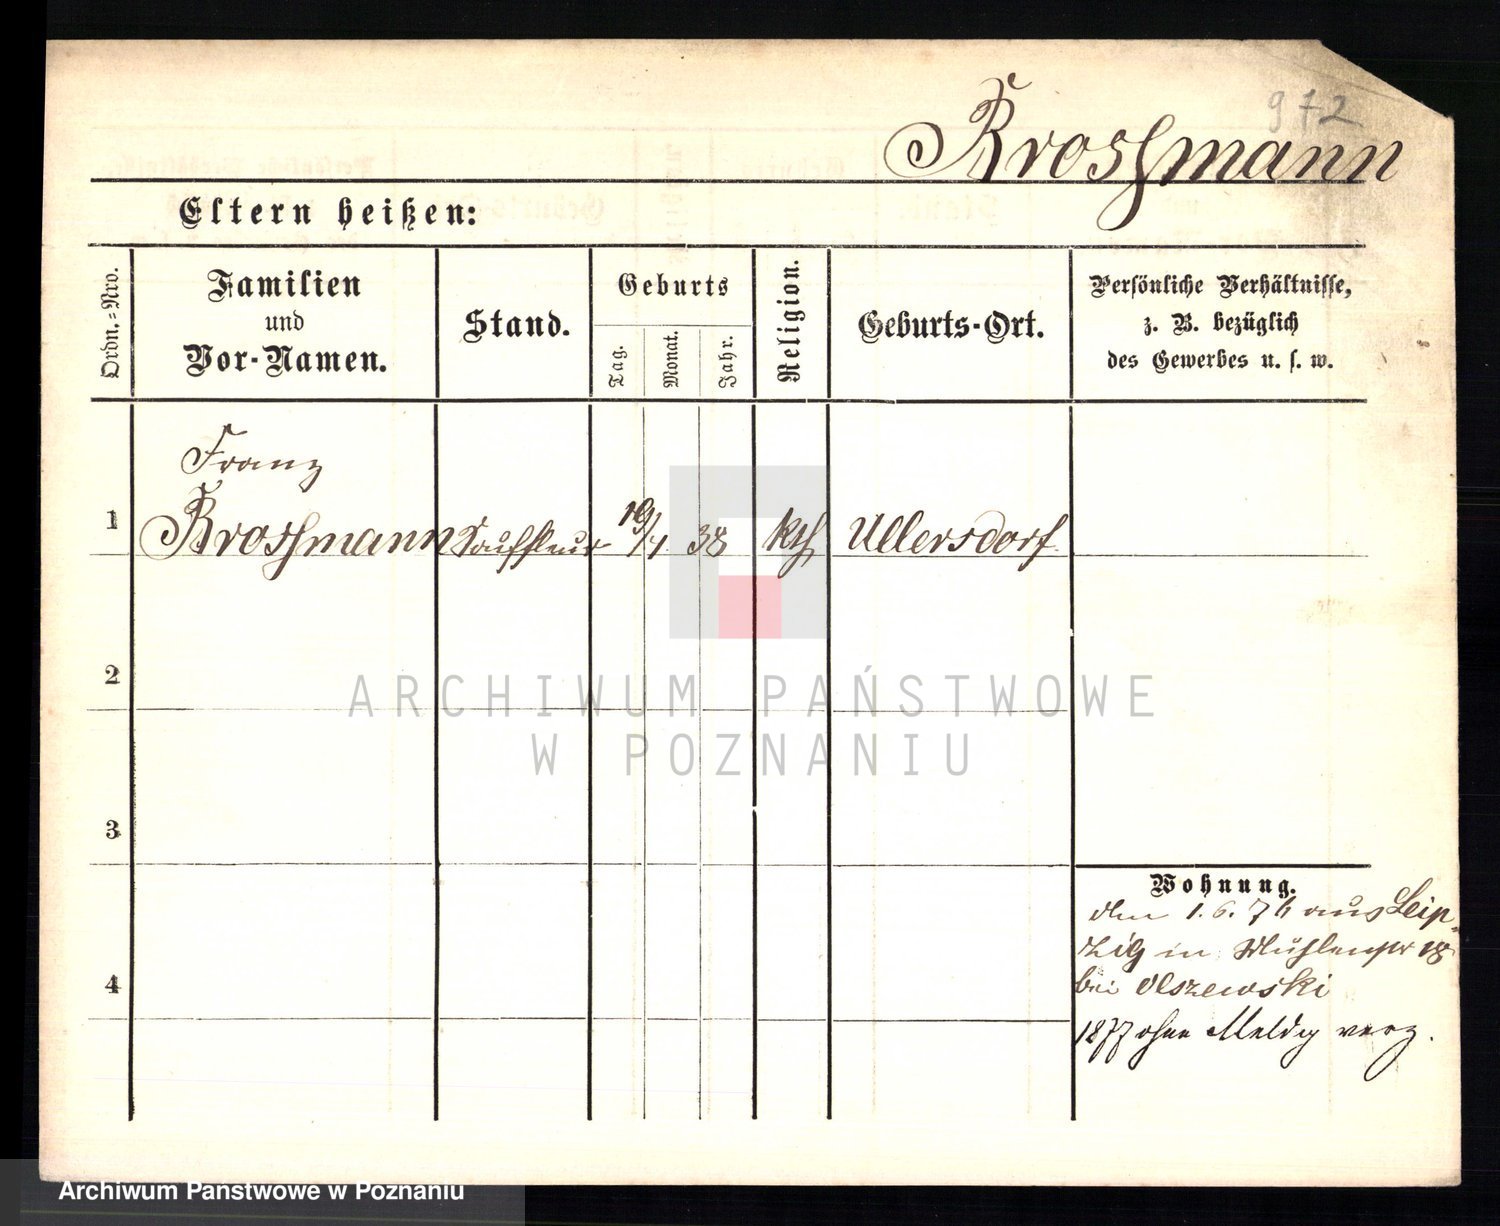 972
Kroschmann
Eltern heißen:
Ordn.=Nro.
Familien
und
Vor-Namen.
Stand.
Geburts
Tag.
Monat.
Jahr.
Religion.
Geburts-Ort.
Persönliche Verhältnisse,
z. B. bezüglich
des Gewerbes u. s. w.
1
Franz
Kroschmann
Souffleur
19/4 38
kth
Ullersdorf
2
3
4
Wohnung.
den 1.6.76 aus Leip=
zig in Mühlenstr 18
bei Olszewski
1877 ohne Meldg verz.
ARCHIWUM PAŃSTWOWE
W POZNANIU
Archiwum Państwowe w Poznaniu